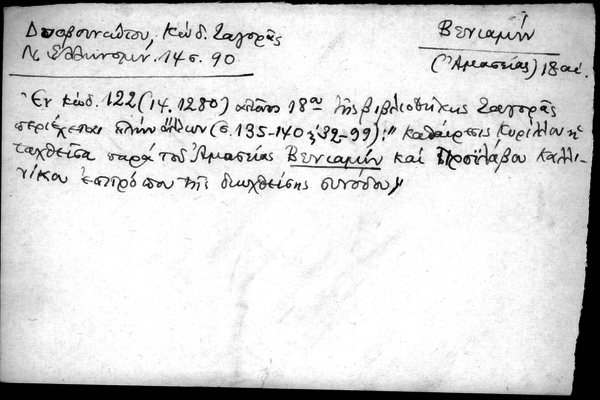 Δυοβουνιώτου, Κώδ. Ζαγορᾶς
Ν. Ἑλληνομν. 14 σ. 90
Βενιαμίν
(Ἀμασείας) 18 αἰ.
Ἐν κώδ. 122 (14. 1280) 18ου τῆς βιβλιοθήκης Ζαγορᾶς
περιέχεται πλὴν ἄλλων (σ. 135-140 92-99): "Καθαίρεσις Κυρίλλου
ταχθεῖσα παρὰ τοῦ Ἀμασείας Βενιαμίν καὶ Προϊλάβου Καλλι-
νίκου τῆς συνόδου"